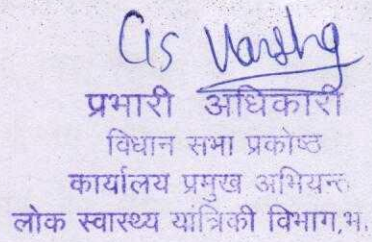 प्रभारी अधिकारी
विधान सभा प्रकोष्ठ
कार्यालय प्रमुख अभियन्त
लोक स्वास्थ्य यांत्रिकी विभाग,भ.